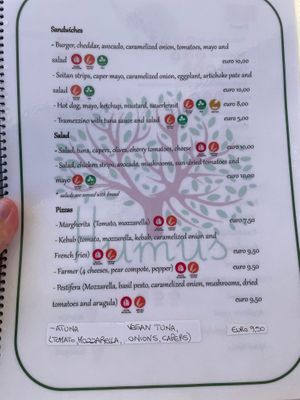 Sandwiches
- Burger, cheddar, avocado, caramelized onion, tomatoes, mayo and
salad euro 10,00
- Seitan strips, caper mayo, caramelized onion, eggplant, artichoke pate and
salad euro 10,00
- Hot dog, mayo, ketchup, mustard, sauerkraut euro 8,00
- Tramezzino with tuna sauce and salad euro 5,00
Salad
- Salad, tuna, capers, olives, cherry tomatoes, cheese euro 10,00
- Salad, chicken strips, avocado, mushrooms, sun dried tomatoes and
mayo euro 10,00
* salads are served with bread
Pizzas
- Margherita (Tomato, mozzarella) euro 7,50
- Kebab (tomato, mozzarella, kebab, caramelized onion and
French fries) euro 9,50
- Farmer (4 cheeses, pear compote, pepper) euro 9,50
- Pestifera (Mozzarella, basil pesto, caramelized onion, mushrooms, dried
tomatoes and arugula) euro 9,50
- ATUNA VEGAN TUNA,
(TOMATO, MOZZARELLA, ONIONS, CAPERS) EURO 9,50